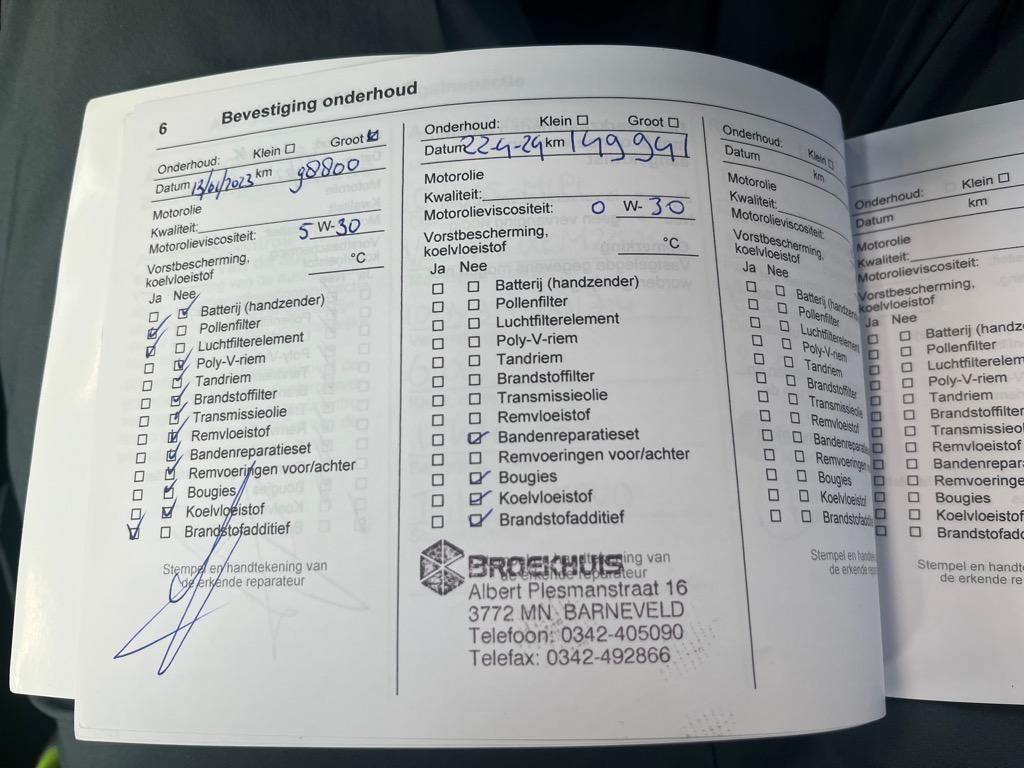 6 Bevestiging onderhoud
Onderhoud: Klein Groot
Datum 13/01/2023 km 98800
Motorolie
Kwaliteit:
Motorolieviscositeit: 5 W-30
Vorstbescherming,
koelvloeistof °C
Ja Nee
Batterij (handzender)
Pollenfilter
Luchtfilterelement
Poly-V-riem
Tandriem
Brandstoffilter
Transmissieolie
Remvloeistof
Bandenreparatieset
Remvoeringen voor/achter
Bougies
Koelvloeistof
Brandstofadditief
Stempel en handtekening van
de erkende reparateur
Onderhoud: Klein Groot
Datum 22-4-24 km 149941
Motorolie
Kwaliteit:
Motorolieviscositeit: 0 W-30
Vorstbescherming,
koelvloeistof °C
Ja Nee
Batterij (handzender)
Pollenfilter
Luchtfilterelement
Poly-V-riem
Tandriem
Brandstoffilter
Transmissieolie
Remvloeistof
Bandenreparatieset
Remvoeringen voor/achter
Bougies
Koelvloeistof
Brandstofadditief
handtekening van
de erkende reparateur
BROEKHUIS
Albert Plesmanstraat 16
3772 MN BARNEVELD
Telefoon: 0342-405090
Telefax: 0342-492866
Onderhoud: Klein
Datum km
Motorolie
Kwaliteit:
Motorolieviscositeit:
Vorstbescherming,
koelvloeistof
Ja Nee
Batterij (handzende
Pollenfilter
Luchtfilterelement
Poly-V-riem
Tandriem
Brandstoffilter
Transmissieolie
Remvloeistof
Bandenreparat
Remvoeringen
Bougies
Koelvloeistof
Brandstofaddit
Stempel en handte
de erkende repa
Onderhoud: Klein
Datum km
Motorolie
Kwaliteit:
Motorolieviscositeit:
Vorstbescherming,
koelvloeistof
Ja Nee
Batterij (handze
Pollenfilter
Luchtfilterelem
Poly-V-riem
Tandriem
Brandstoffilter
Transmissieo
Remvloeistof
Bandenrepar
Remvoeringe
Bougies
Koelvloeistof
Brandstofadd
Stempel en handte
de erkende re